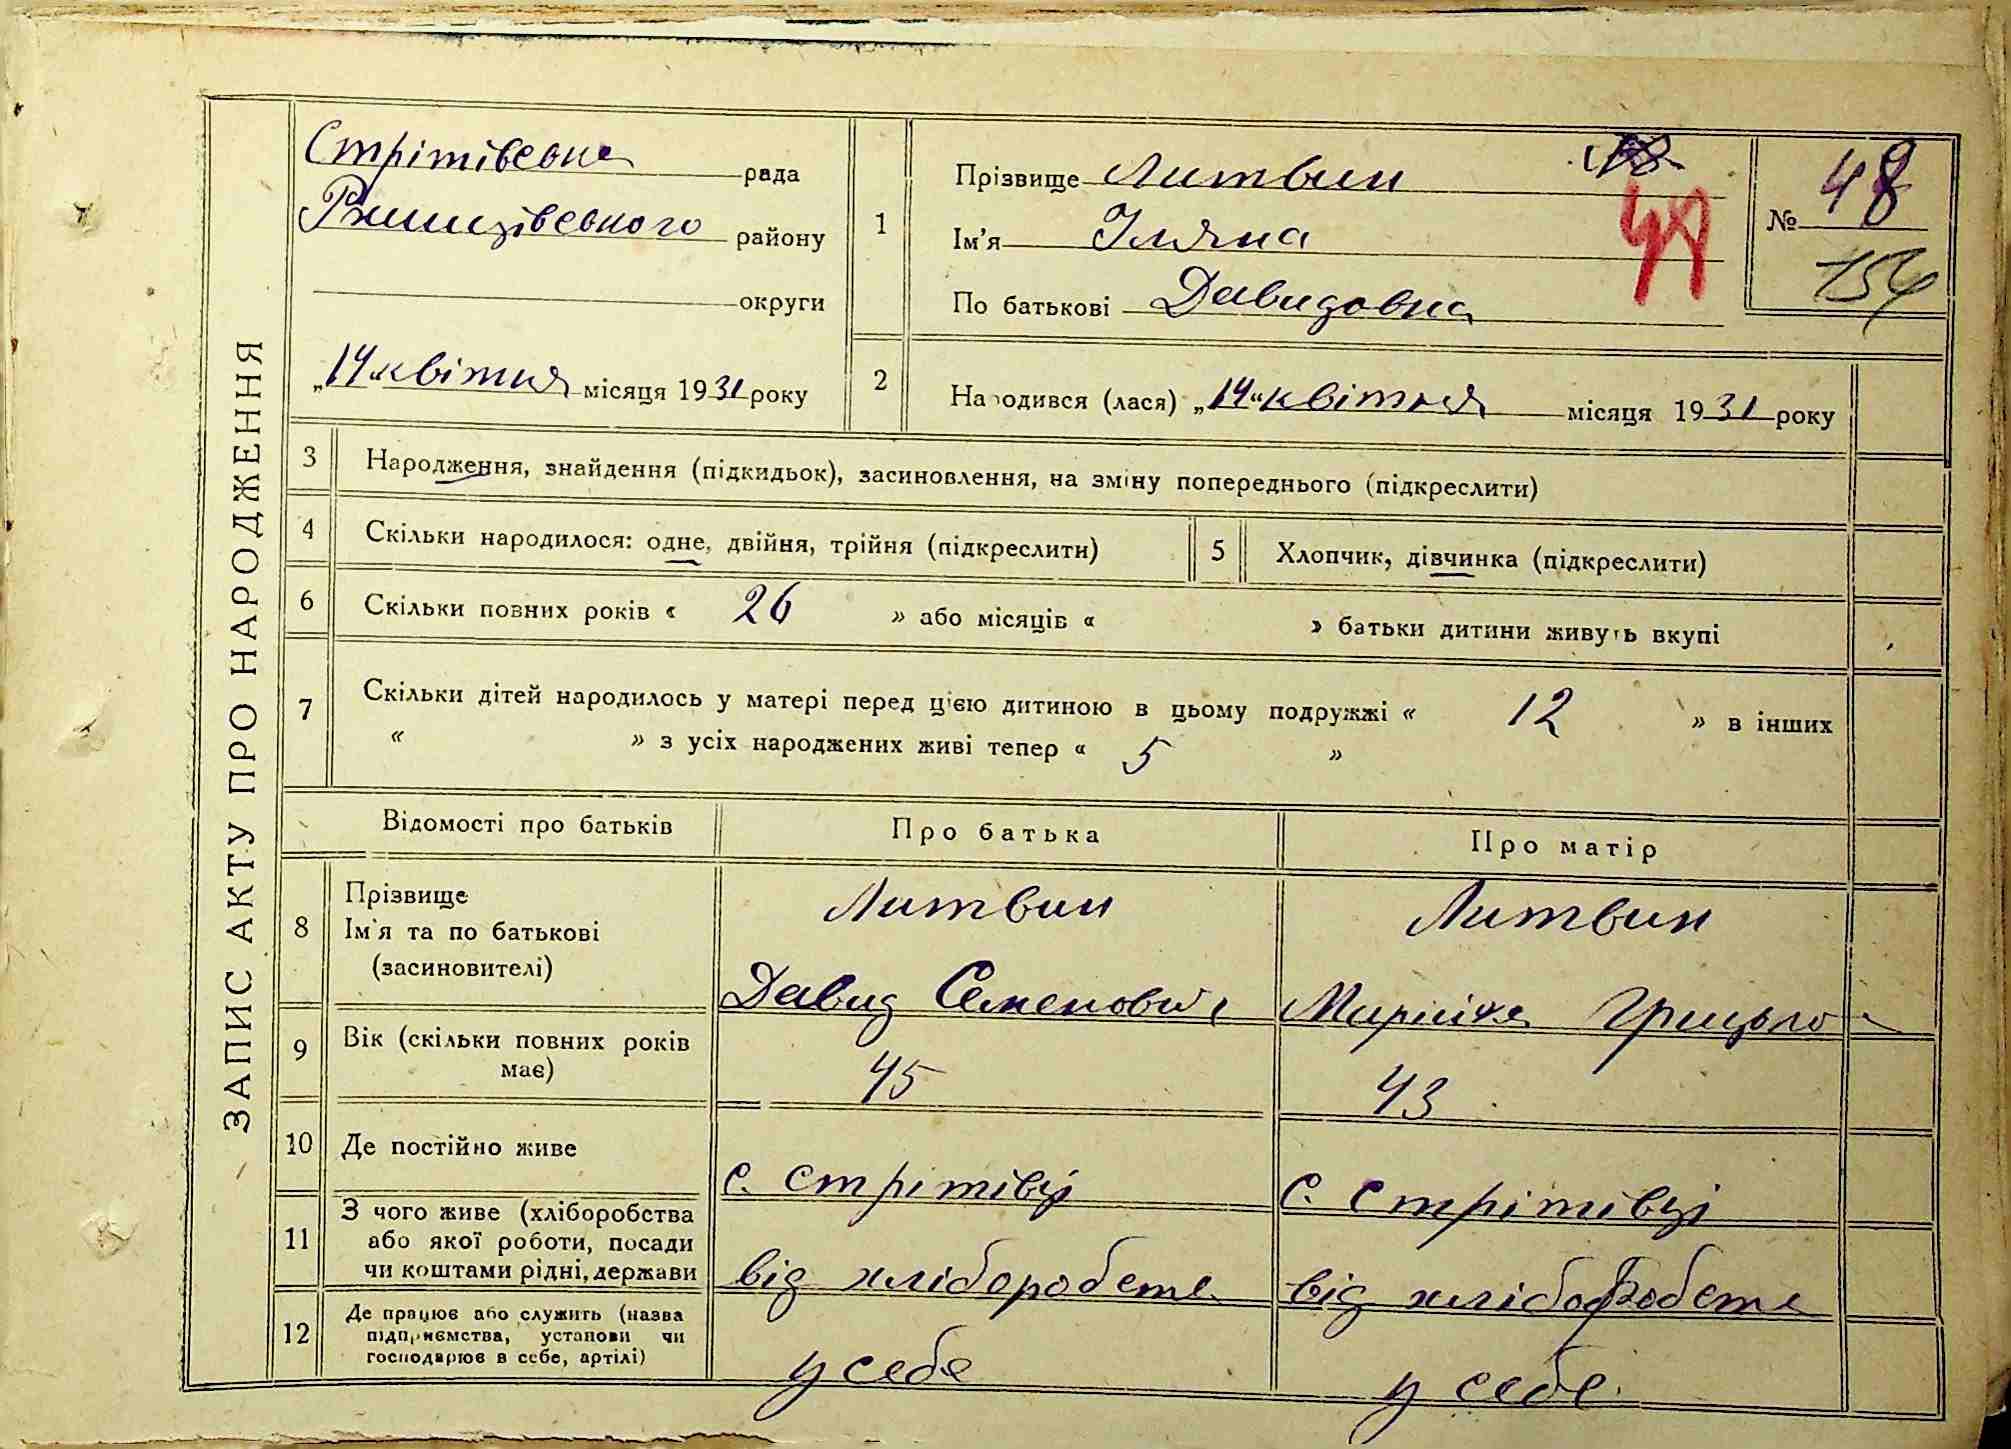 ЗАПИС АКТУ ПРО НАРОДЖЕННЯ
Стрітівська рада
Ржищівського району
округи
„14“ квітня місяця 1931 року
1
Прізвище Литвин
Ім'я Уляна
По батькові Давидовна
48
№ 48
154
2
Народився (лася) „14“ квітня місяця 1931 року
3 Народження, знайдення (підкидьок), засиновлення, на зміну попереднього (підкреслити)
4 Скільки народилося: одне, двійня, трійня (підкреслити)
5 Хлопчик, дівчинка (підкреслити)
6 Скільки повних років « 26 » або місяців « » батьки дитини живуть вкупі
7 Скільки дітей народилось у матері перед цією дитиною в цьому подружжі « 12 » в інших
« » з усіх народжених живі тепер « 5 »
Відомості про батьків Про батька Про матір
8 Прізвище
Ім'я та по батькові
(засиновителі)
Литвин
Давид Семенович
Литвин
Грицько
9 Вік (скільки повних років
має)
45
43
10 Де постійно живе
с. Стрітівці
с. Стрітівці
11 З чого живе (хліборобства
або якої роботи, посади
чи коштами рідні, держави
від хліборобства
від хліборобства
12 Де працює або служить (назва
підприємства, установи чи
господарює в себе, артілі)
у себе
у себе